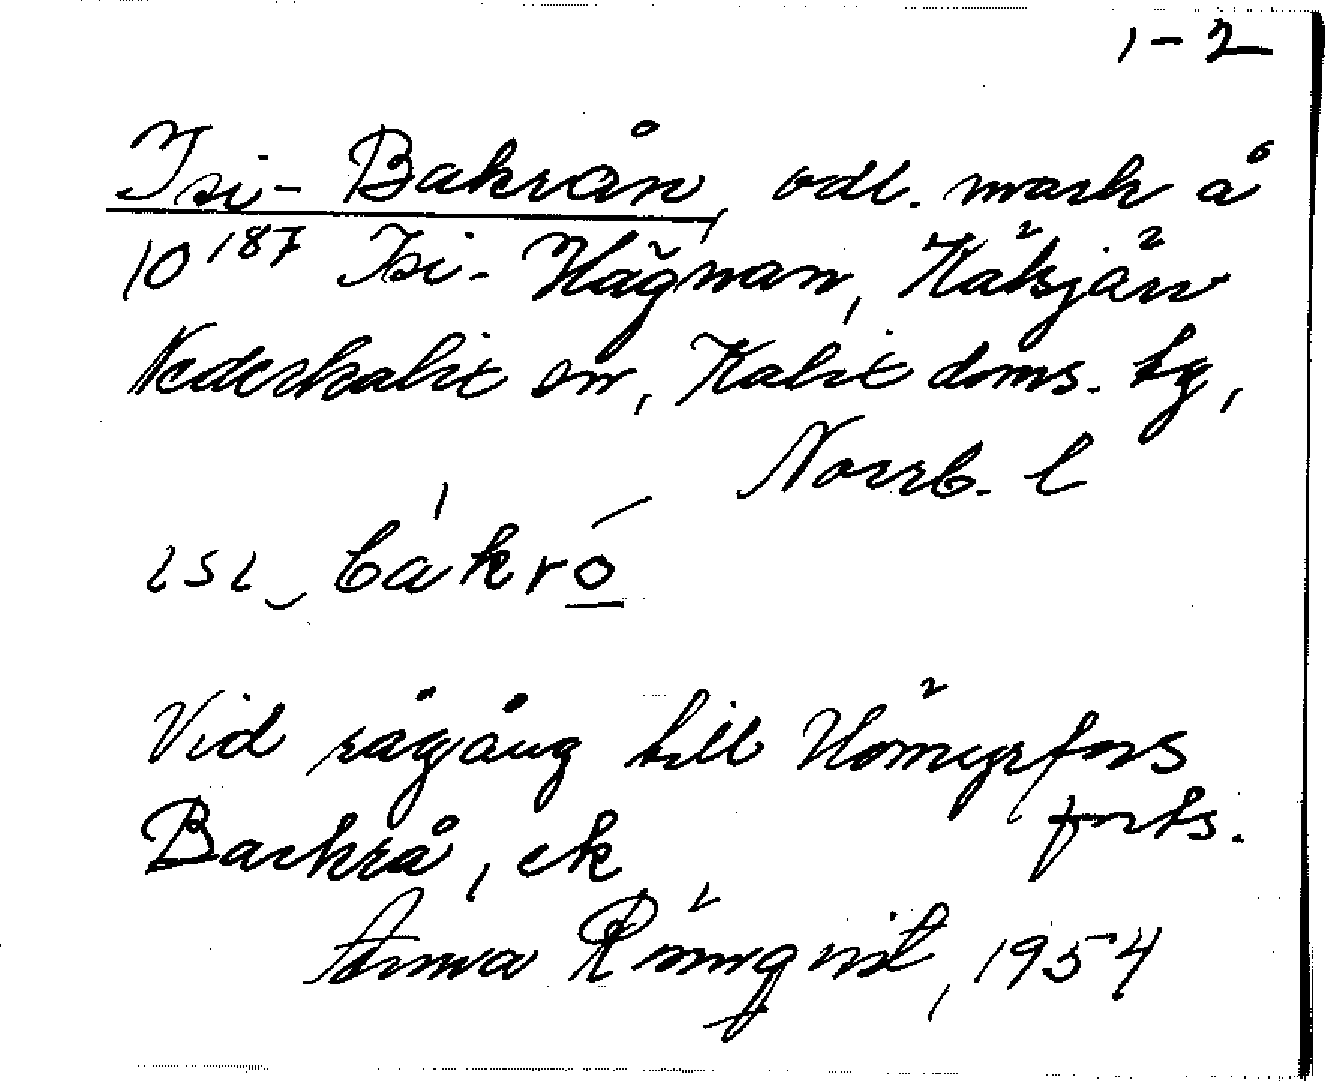 1-2
Isi-Bakrån, odl. mark å
10¹⁸⁷ Isi-Hägnan, Kätsjärv
Nederkalix sn, Kalix doms. tg,
Norrb. l
ɩsɩ‿bákró
Vid rågång till Hömyrfors
forts.
Backrå, ek
Anna Rönnqvist, 1954